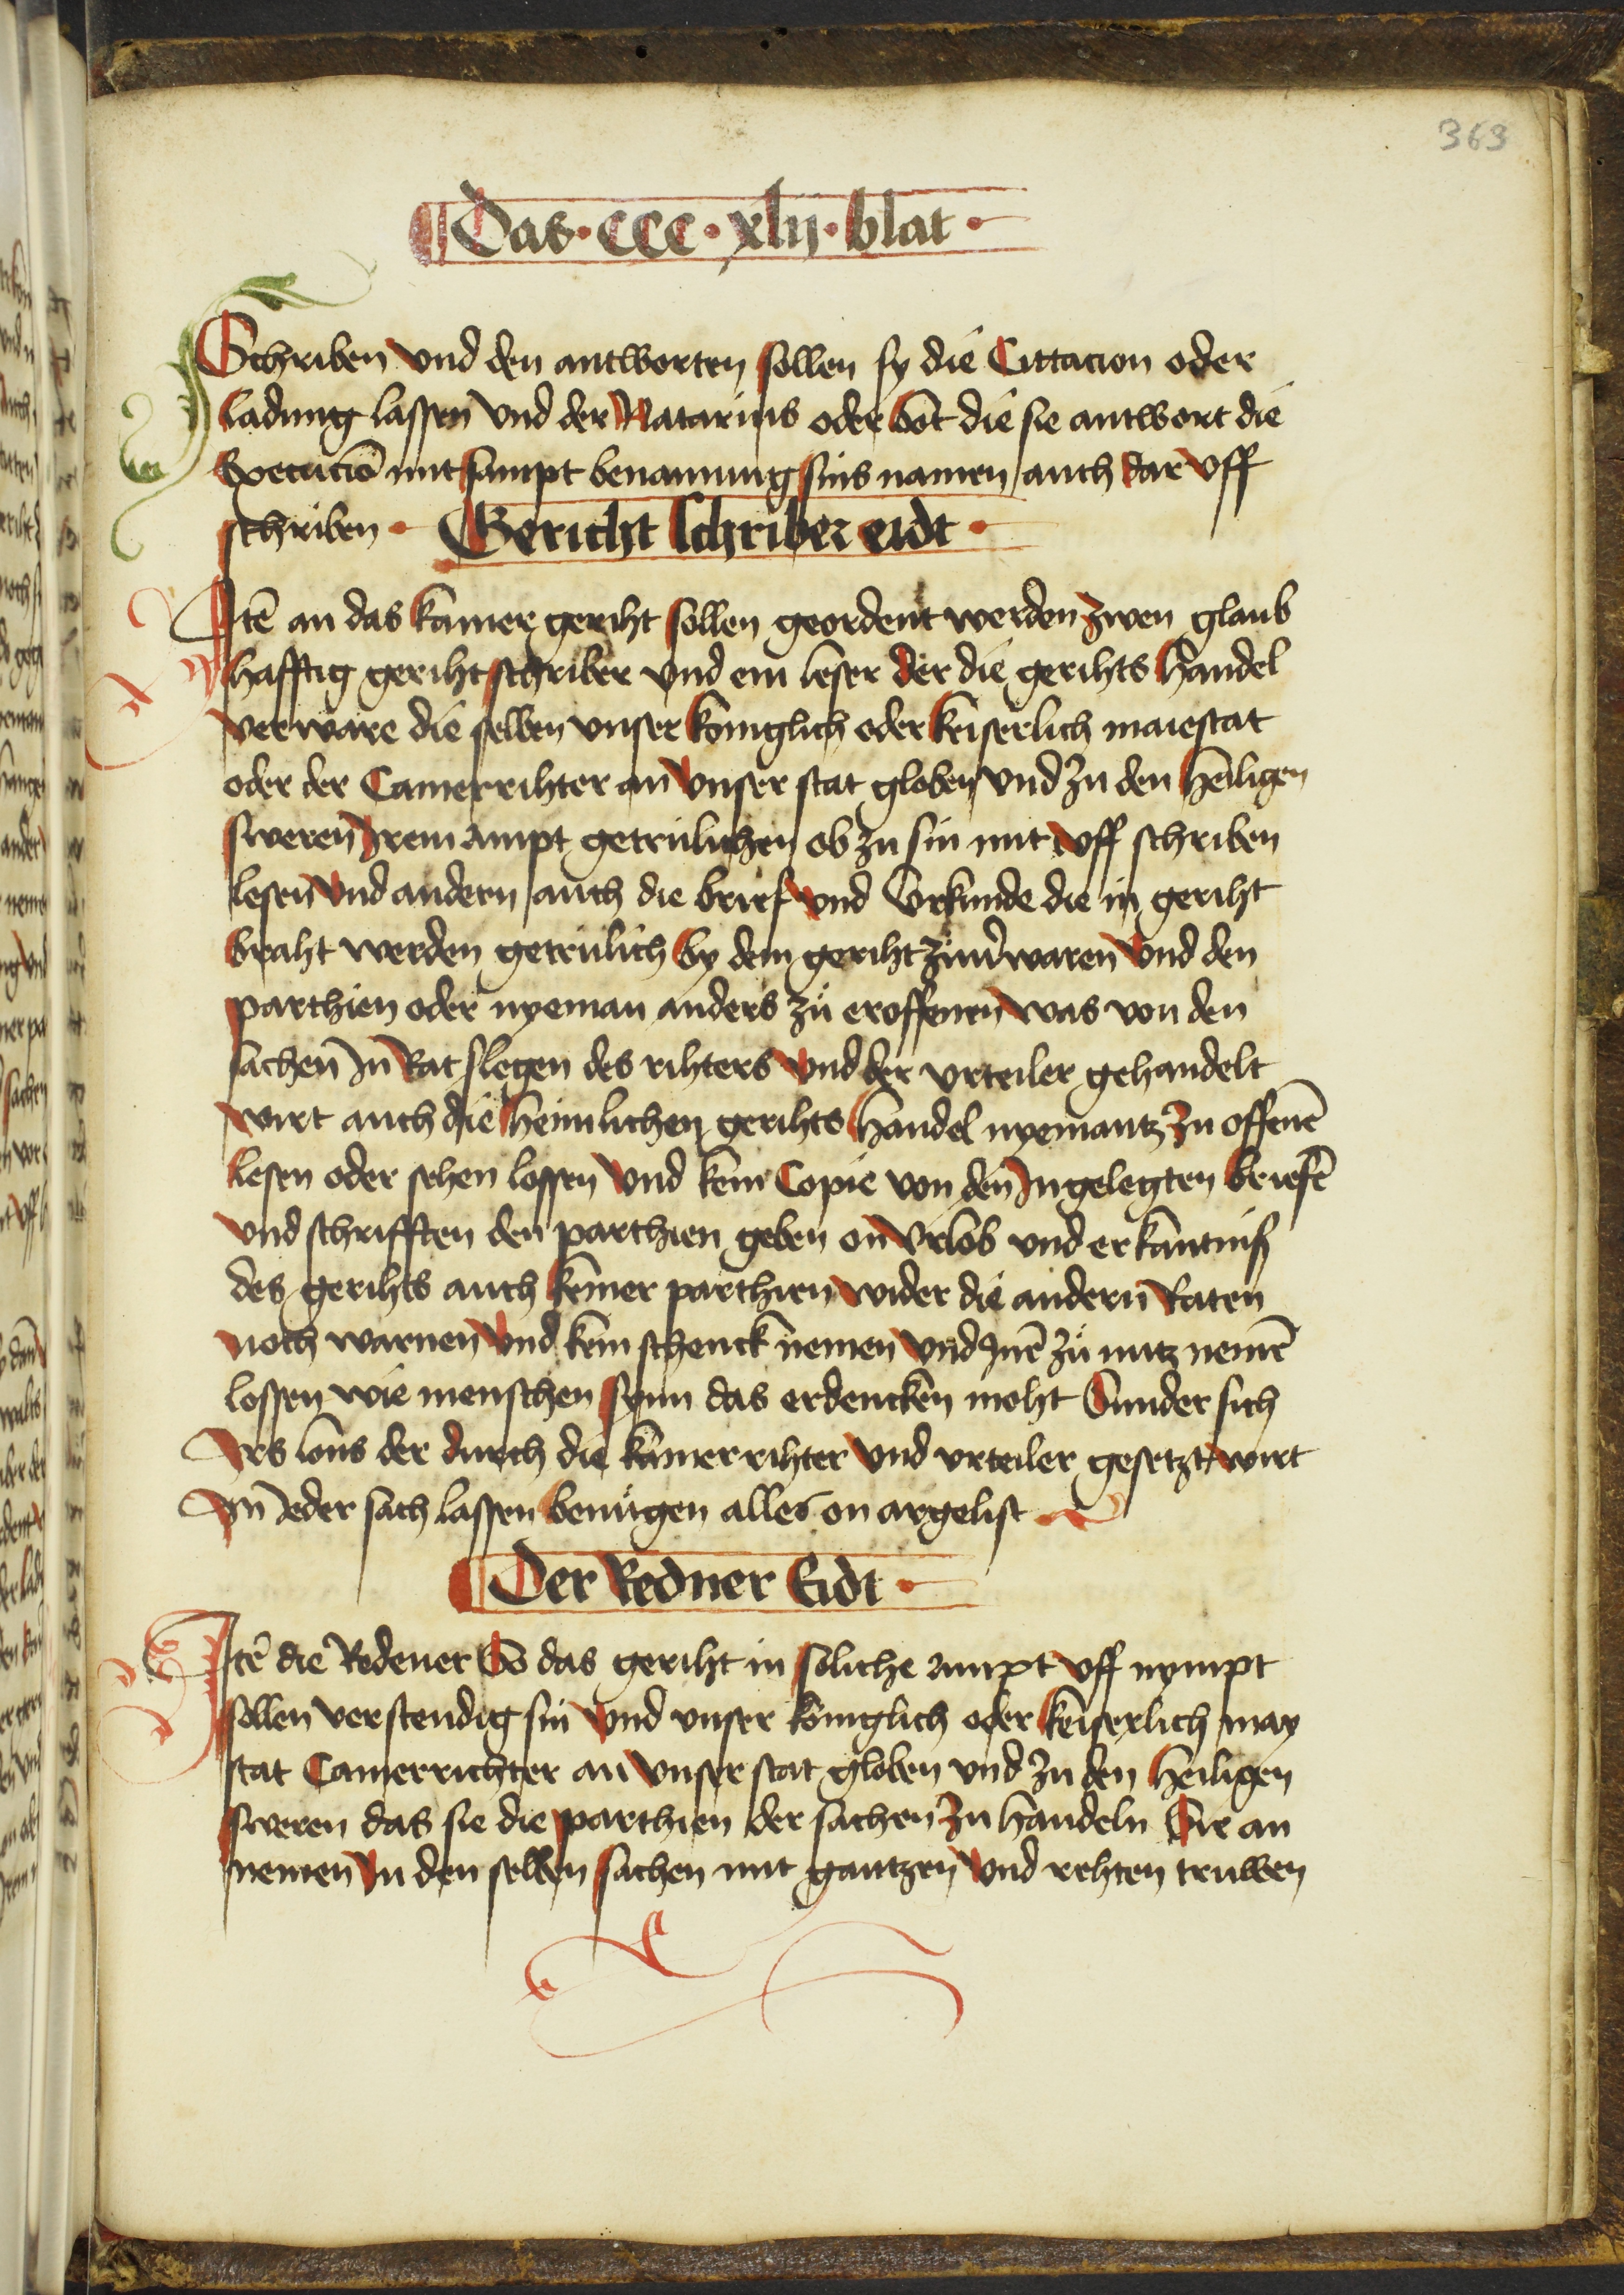 363
Das · ccc · xlij · blat ·
Schriben vnd den antworten sollen sy die Cittacion oder
ladung lassen vnd der Natarius oder bot die sie antwort die
Executiō mit sampt benannung sins namen auch dar vff
schriben · Gericht schriber eidt ·
Jtē an das kamer geriht sollen geordent werden zwen glaub
hafftig geriht schriber vnd ein leser der die gerihts handel
verware die selben vnser koniglich oder keiserlich maiestat
oder der Camerrihter an vnser stat globen vnd zu den heiligen
sweren Jrem ampt getrulichen ob zu sin mit vff schriben
lesen vnd andern auch die brief vnd vrkunde die in geriht
braht werden getrulich by dem geriht zu verwaren vnd den
parthien oder nyeman anders zů eroffenen was von den
sachen Jn Rat slegen des rihters vnd der vrteiler gehandelt
wirt auch die heimlichen gerihts handel nyemantz zu offenē
lesen oder sehen lossen vnd kein Copie von den Jngelegten briefē
vnd schrifften den parthien geben on vrlob vnd erkantniß
des gerihts auch keiner parthien wider die andern Raten
noch warnen vnd kein schenck nemen vnd Jnē zů nutz nemē
lossen wie menschen synn das erdencken moht Sunder sich
Jrs lons der durch die kamerrihter vnd vrteiler gesetzt wirt
Jn ieder sach lassen benůgen alles on argelist
Der Redner Eidt ·
Jtē die Redener So das geriht in soliche ampt vff nympt
sollen verstendig sin vnd vnser koniglich oder keiserlich may
stat Camerrichter an vnser stat globen vnd zu den heiligen
sweren das sie die parthien der sachen zu handeln Sie an
nemen Jn den selben sachen mit gantzen vnd rehten truwen